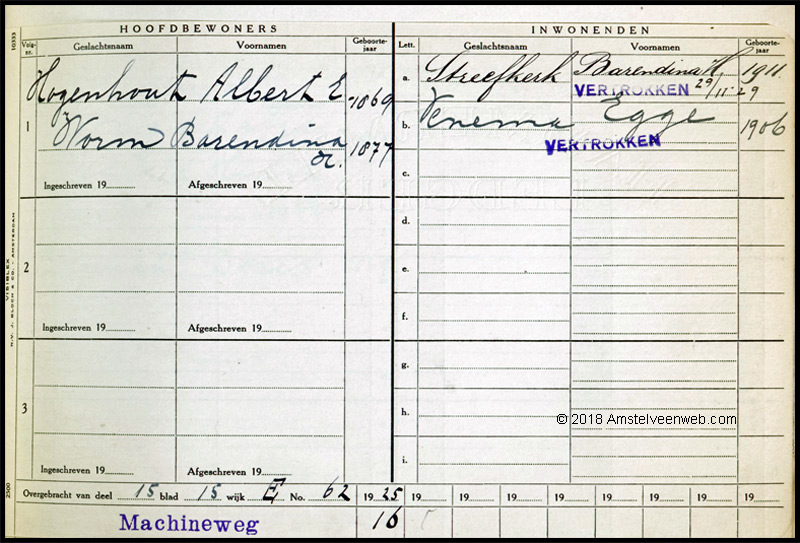 HOOFDBEWONERS
Volg-nr. Geslachtsnaam Voornamen Geboorte-jaar
1
Hogenhout Albert E. 1869
Worm Barendina 1877
Ingeschreven 19 Afgeschreven 19
2
Ingeschreven 19 Afgeschreven 19
3
Ingeschreven 19 Afgeschreven 19
INWONENDEN
Lett. Geslachtsnaam Voornamen Geboorte-jaar
a. Streefkerk Barendina H. 1911
VERTROKKEN 29/11-29
b. Venema Egge 1906
VERTROKKEN
c.
d.
e.
f.
g.
h.
i.
© 2018 Amstelveenweb.com
Overgebracht van deel 15 blad 15 wijk E No. 62 1925 19 19 19 19 19 19 19 19
Machineweg 16
10333
VISIBLEX
N.V. J. BLOEM & CO. - AMSTERDAM
2500